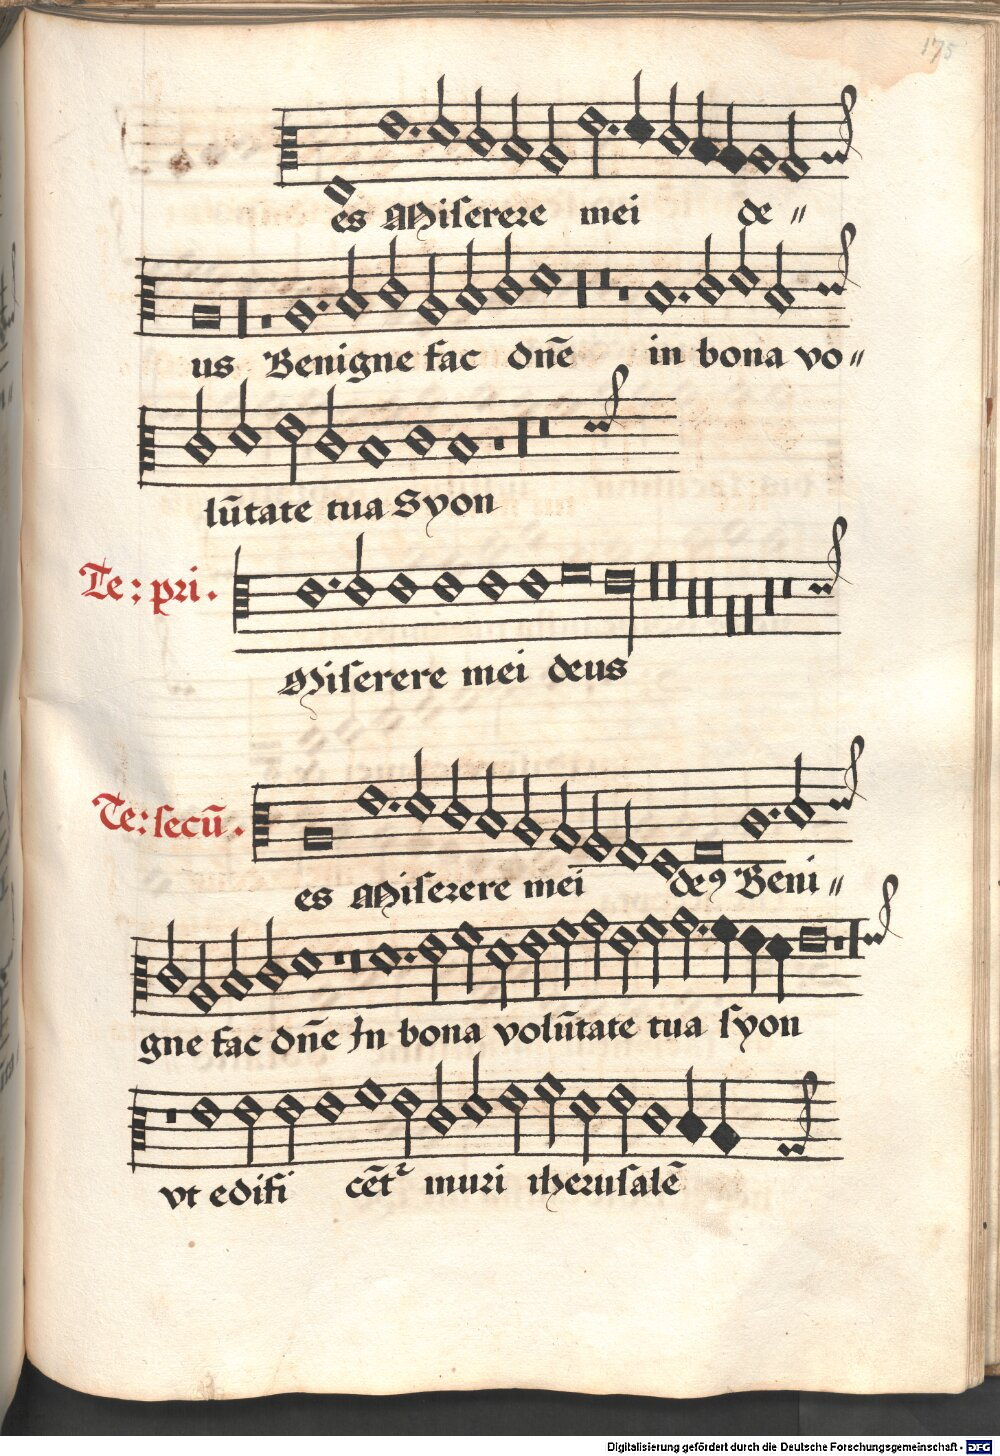 175
es Miserere mei de〃
us Benigne fac dn̄e in bona vo〃
lūtate tua Syon
Te: pri.
Miserere mei deus
Te: secū.
es Miserere mei deꝯ Beni〃
gne fac dn̄e In bona volūtate tua syon
vt edifi cēt᷑ muri iherusalē
Digitalisierung gefördert durch die Deutsche Forschungsgemeinschaft - DFG